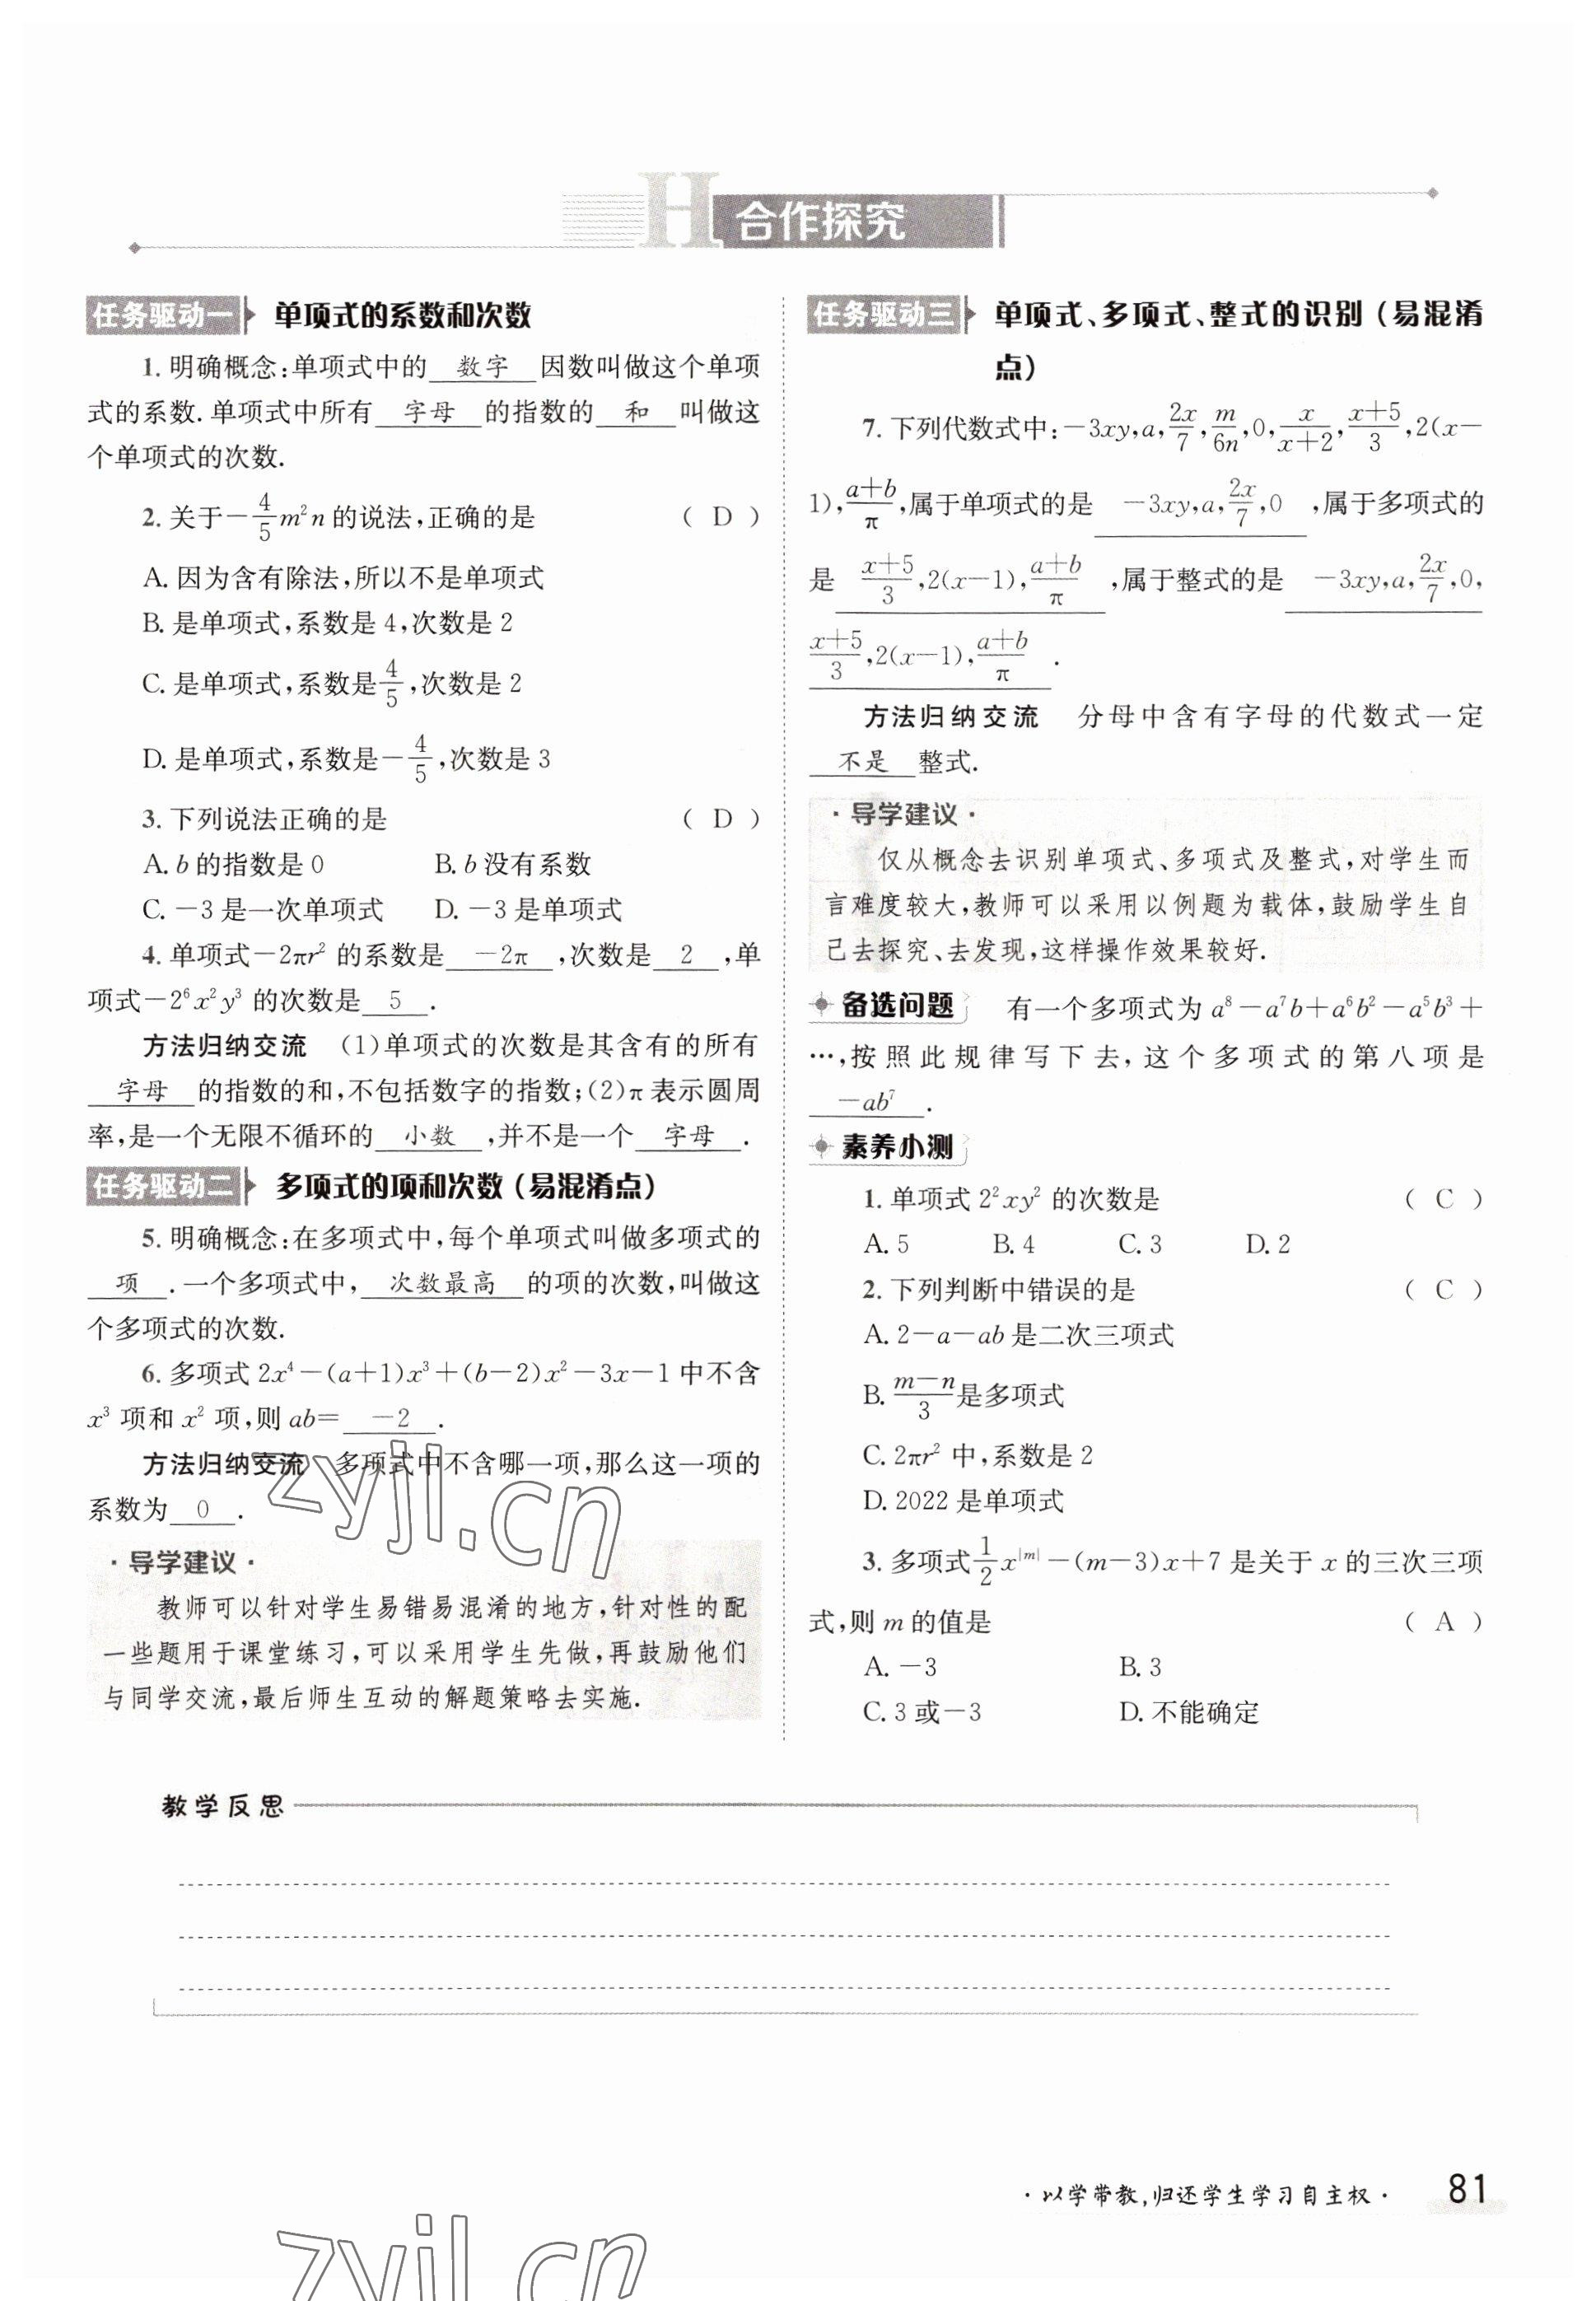 H 合作探究
任务驱动一 单项式的系数和次数
1. 明确概念:单项式中的 数字 因数叫做这个单项
式的系数. 单项式中所有 字母 的指数的 和 叫做这
个单项式的次数.
2. 关于-4/5 m²n 的说法,正确的是 ( D )
A. 因为含有除法,所以不是单项式
B. 是单项式,系数是 4,次数是 2
C. 是单项式,系数是4/5,次数是 2
D. 是单项式,系数是-4/5,次数是 3
3. 下列说法正确的是 ( D )
A. b 的指数是 0 B. b 没有系数
C. -3 是一次单项式 D. -3 是单项式
4. 单项式-2πr² 的系数是 -2π ,次数是 2 ,单
项式-2⁶x²y³ 的次数是 5 .
方法归纳交流 (1)单项式的次数是其含有的所有
字母 的指数的和,不包括数字的指数;(2)π 表示圆周
率,是一个无限不循环的 小数 ,并不是一个 字母 .
任务驱动二 多项式的项和次数(易混淆点)
5. 明确概念:在多项式中,每个单项式叫做多项式的
项 . 一个多项式中, 次数最高 的项的次数,叫做这
个多项式的次数.
6. 多项式 2x⁴-(a+1)x³+(b-2)x²-3x-1 中不含
x³ 项和 x² 项,则 ab= -2 .
方法归纳交流 多项式中不含哪一项,那么这一项的
系数为 0 .
·导学建议·
教师可以针对学生易错易混淆的地方,针对性的配
一些题用于课堂练习,可以采用学生先做,再鼓励他们
与同学交流,最后师生互动的解题策略去实施.
任务驱动三 单项式、多项式、整式的识别(易混淆
点)
7. 下列代数式中:-3xy,a,2x/7,m/6n,0,x/(x+2),(x+5)/3,2(x-
1),(a+b)/π,属于单项式的是 -3xy,a,2x/7,0 ,属于多项式的
是 (x+5)/3,2(x-1),(a+b)/π ,属于整式的是 -3xy,a,2x/7,0,
(x+5)/3,2(x-1),(a+b)/π .
方法归纳交流 分母中含有字母的代数式一定
不是 整式.
·导学建议·
仅从概念去识别单项式、多项式及整式,对学生而
言难度较大,教师可以采用以例题为载体,鼓励学生自
己去探究、去发现,这样操作效果较好.
备选问题 有一个多项式为 a⁸-a⁷b+a⁶b²-a⁵b³+
…,按照此规律写下去,这个多项式的第八项是
-ab⁷ .
素养小测
1. 单项式 2²xy² 的次数是 ( C )
A. 5 B. 4 C. 3 D. 2
2. 下列判断中错误的是 ( C )
A. 2-a-ab 是二次三项式
B. (m-n)/3 是多项式
C. 2πr² 中,系数是 2
D. 2022 是单项式
3. 多项式 1/2 x^|m|-(m-3)x+7 是关于 x 的三次三项
式,则 m 的值是 ( A )
A. -3 B. 3
C. 3 或-3 D. 不能确定
zyjl.cn
教学反思
·以学带教,归还学生学习自主权· 81
zyjl.cn